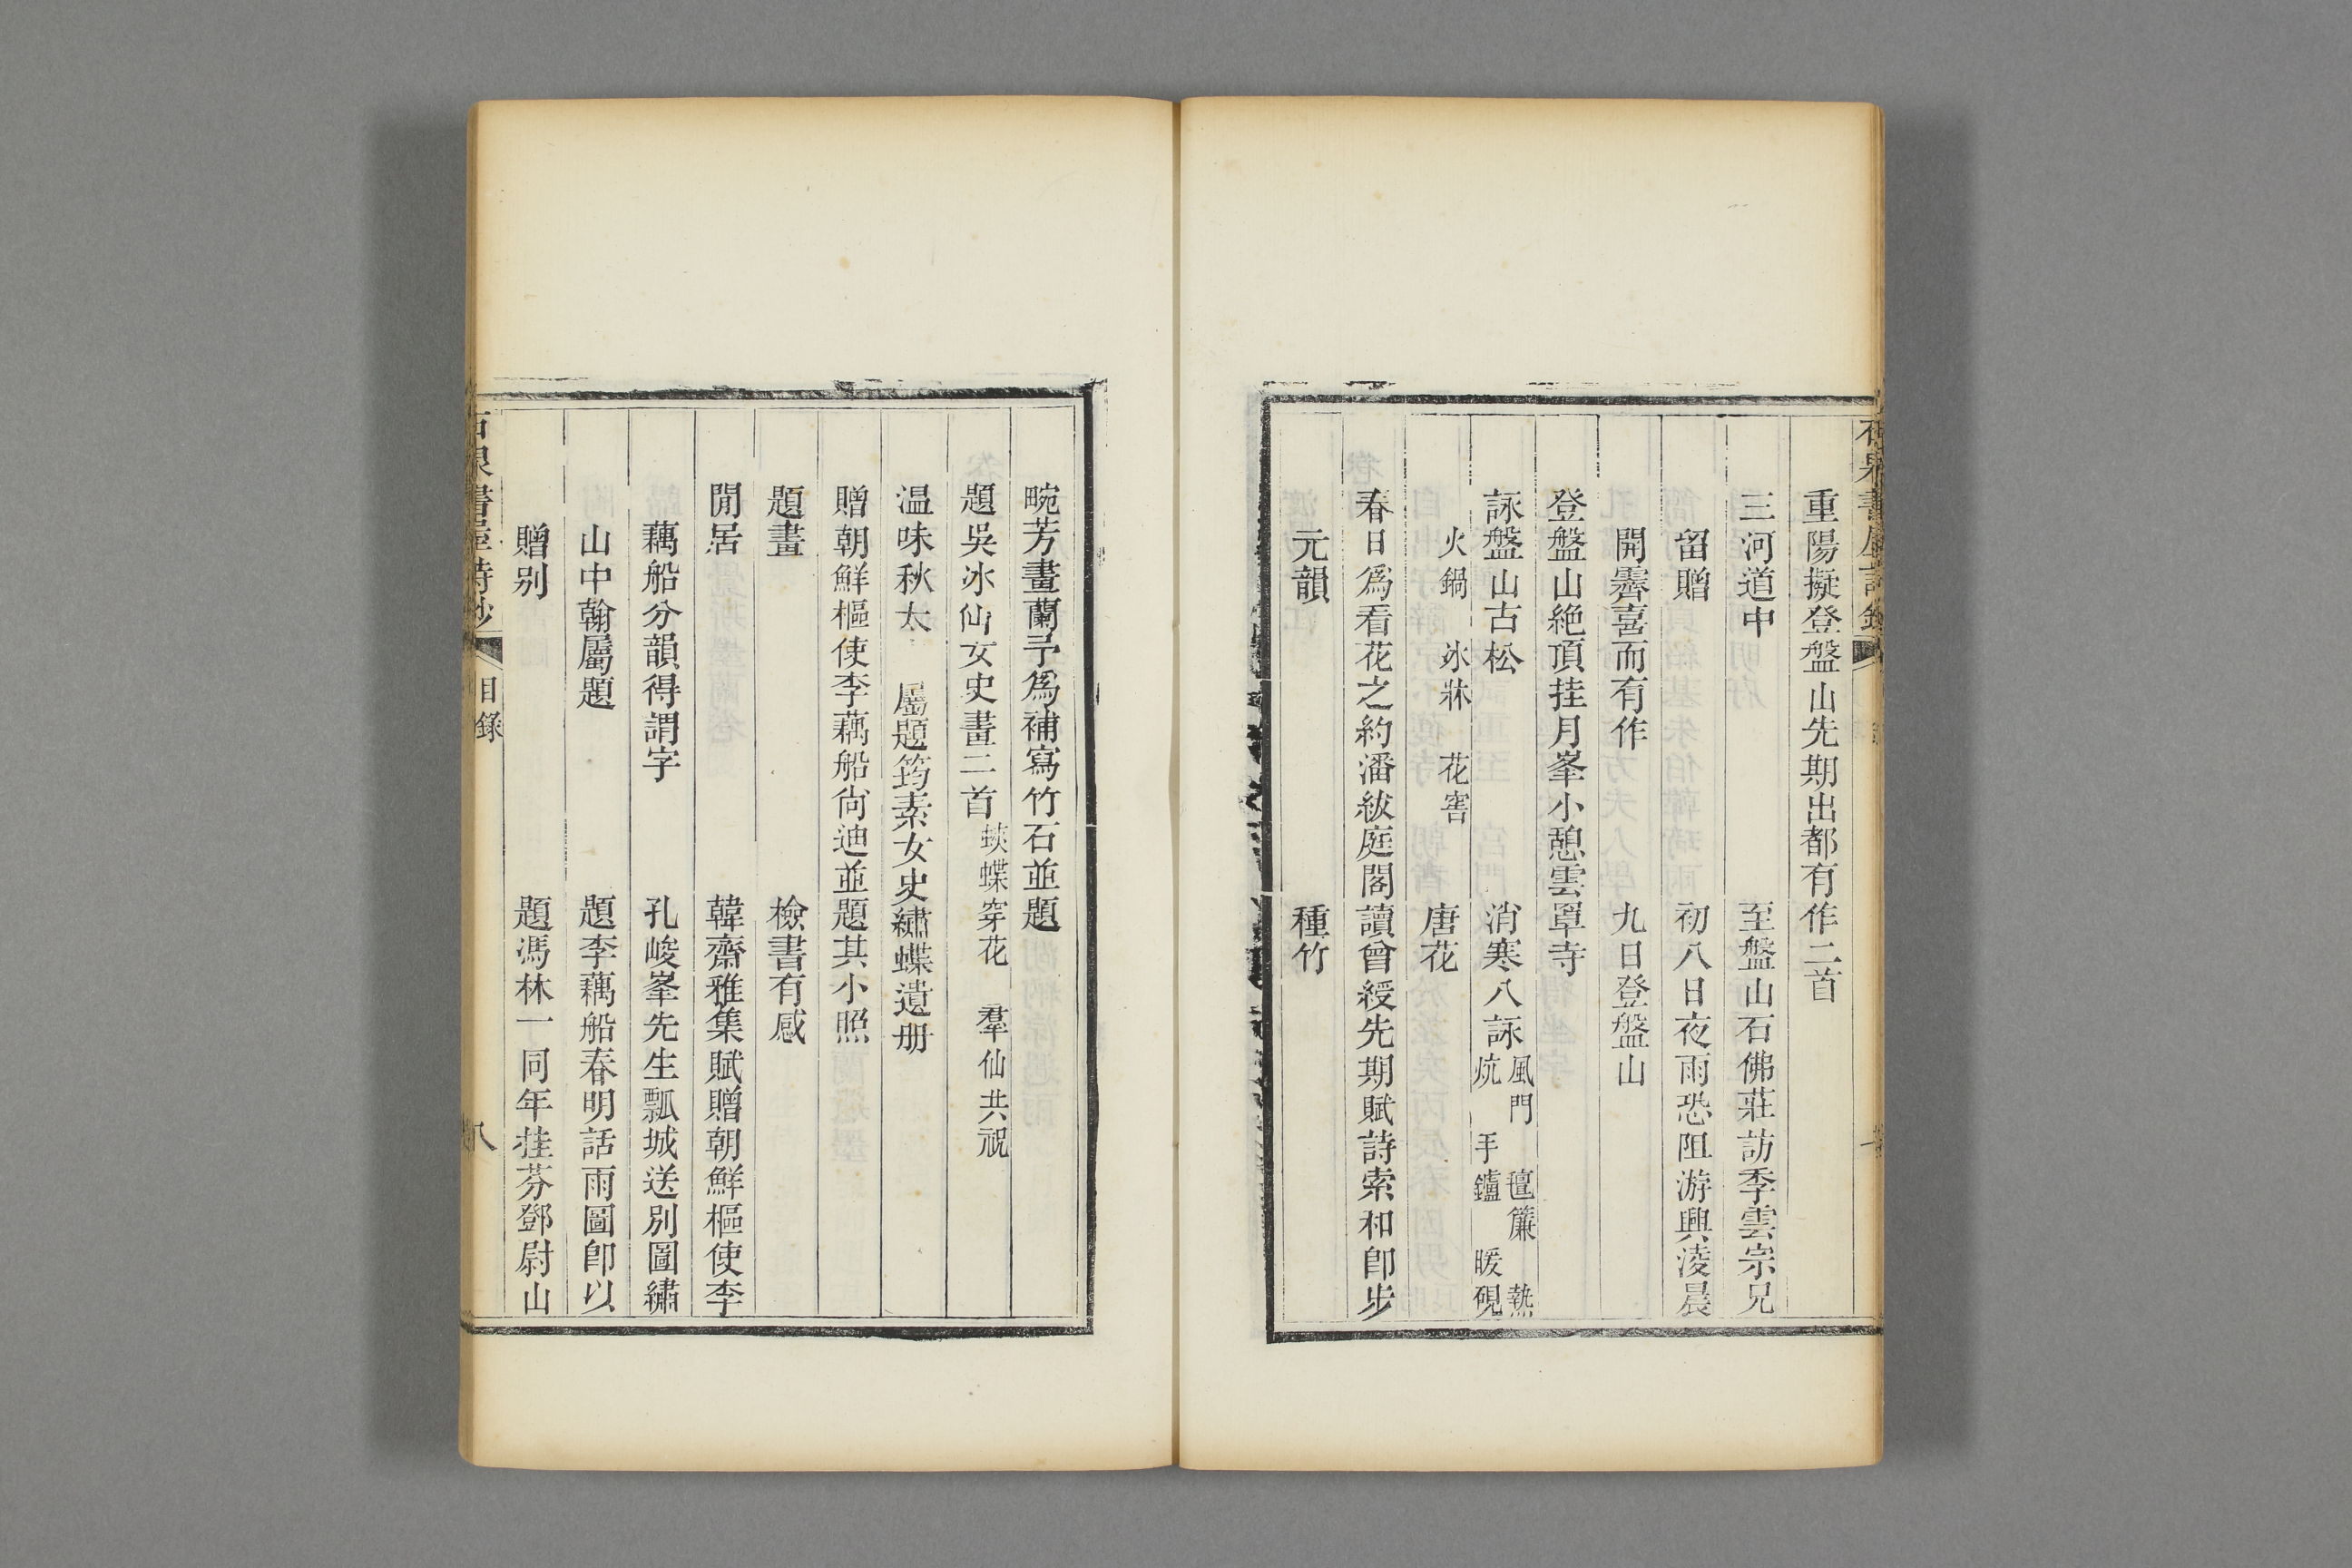 重陽擬登盤山先期出都有作二首
三河道中　至盤山石佛莊訪季雲宗兄
留贈　初八日夜雨恐阻游興淩晨
開霽喜而有作　九日登盤山
登盤山絕頂挂月峯小憩雲罩寺
詠盤山古松　消寒八詠 風門　氊簾　熱
炕　手鑪　暖硯
火鍋　冰牀　花窖　唐花
春日爲看花之約潘紱庭閣讀曾綬先期賦詩索和卽步
元韻　種竹
畹芳畫蘭予爲補寫竹石並題
題吳冰仙女史畫二首 蛺蝶穿花　羣仙共祝
温味秋太　屬題筠素女史繡蝶遺册
贈朝鮮樞使李藕船尙迪並題其小照
題畫　檢書有感
閒居　韓齋雅集賦贈朝鮮樞使李
藕船分韻得謂字　孔峻峯先生瓢城送別圖繡
山中翰屬題　題李藕船春明話雨圖卽以
贈别　題馮林一同年桂芬鄧尉山
石泉書屋詩鈔　目錄　八